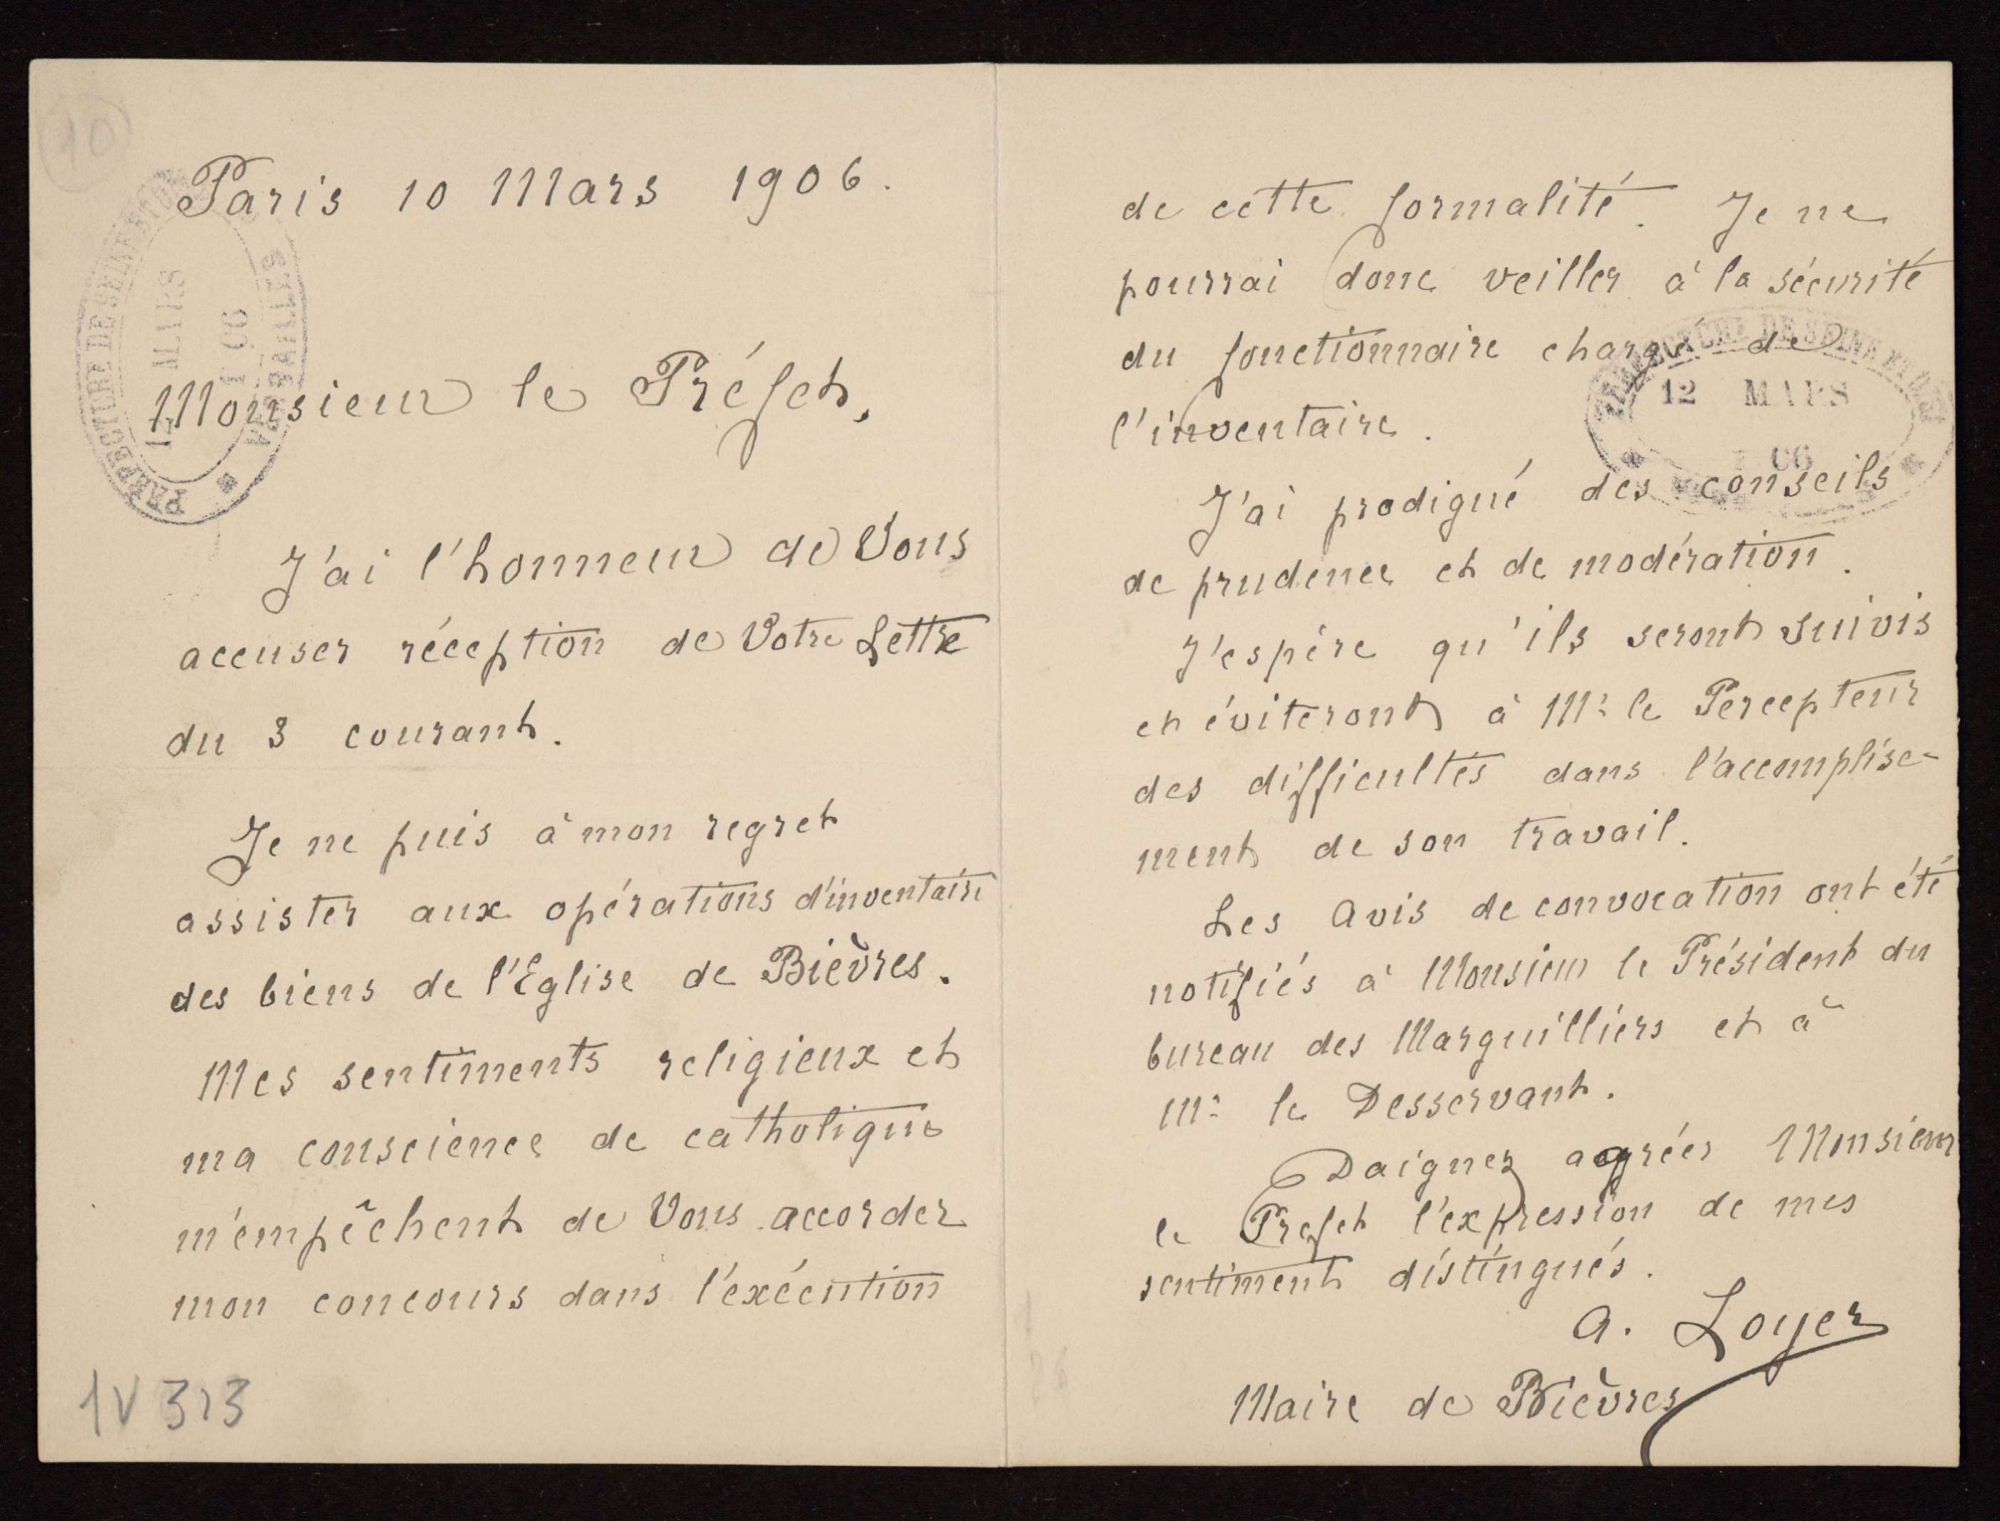 10
Paris 10 Mars 1906.
PRÉFECTURE DE SEINE ET OISE
12 MARS
1906
VERSAILLES
Monsieur le Préfet,
J'ai l'honneur de Vous
accuser réception de Votre Lettre
du 3 courant.
Je ne puis à mon regret
assister aux opérations d'inventaire
des biens de l'Eglise de Bièvres.
Mes sentiments religieux et
ma conscience de catholique
m'empêchent de Vous accorder
mon concours dans l'exécution
1V 313
de cette formalité. Je ne
pourrai donc veiller à la sécurité
du fonctionnaire chargé de
l'inventaire.
PRÉFECTURE DE SEINE ET OISE
12 MARS
06
J'ai prodigué des conseils
de prudence et de modération.
J'espère qu'ils seront suivis
et éviteront à Mr le Percepteur
des difficultés dans l'accomplisse-
ment de son travail.
Les Avis de convocation ont été
notifiés à Monsieur le Président du
bureau des Marguilliers et à
Mr le Desservant.
Daignez agréer Monsieur
le Prefet l'expression de mes
sentiment distingués.
A. Loyer
Maire de Bièvres